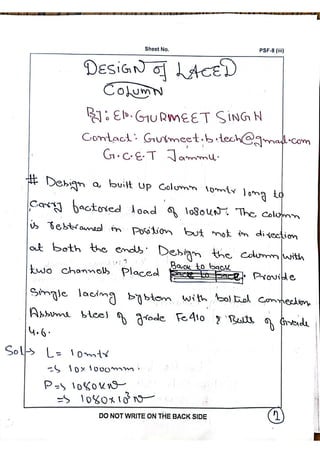 Sheet No.
PSF-8 (iii)
DESIGN of LACED
COLUMN
By: ER. GURMEET SINGH
Contact: Gurmeet.b.tech@gmail.com
G.C.E.T Jammu.
# Design a built up column 10mtr long to
carry factored load of 1080kN. The column
is restrained in position but not in direction
at both the ends. Design the column with
two channels placed Back to back. Provide
Single lacing system with bolted connection
Assume steel of grade Fe410 & Bolts of Grade
4.6.
Sol→ L = 10mtr
=> 10×1000mm.
P => 1080kN
=> 1080×10³N
DO NOT WRITE ON THE BACK SIDE
1